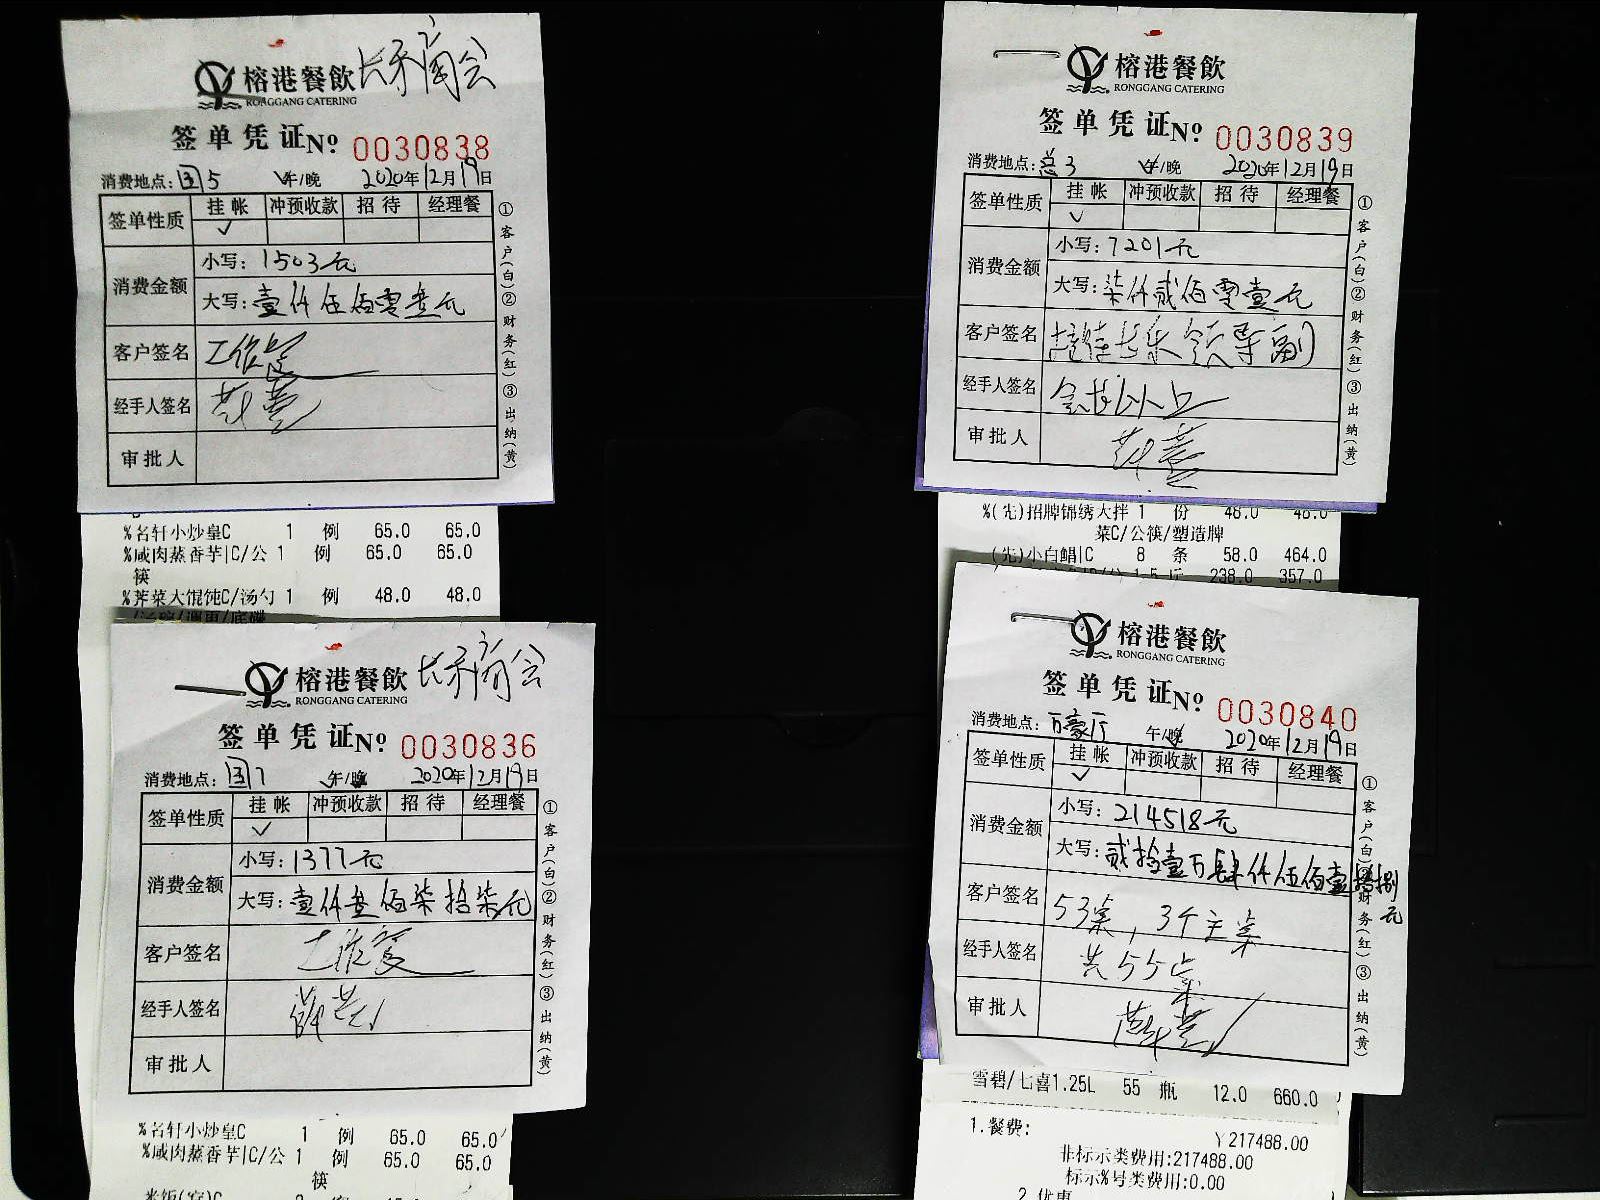 榕港餐飲 长乐商会
RONGGANG CATERING
签单凭证 № 0030838
消费地点: 国5 午/晚 2020年12月19日
签单性质 挂帐 冲预收款 招待 经理餐
✓
消费金额 小写: 1503元
大写: 壹仟伍佰零叁元
客户签名 工作餐
经手人签名
审批人
①客户(白)②财务(红)③出纳(黄)
%名轩小炒皇C 1 例 65.0 65.0
%咸肉蒸香芋|C/公 1 例 65.0 65.0
筷
%荠菜大馄饨C/汤勺 1 例 48.0 48.0
榕港餐飲 长乐商会
RONGGANG CATERING
签单凭证 № 0030836
消费地点: 国7 午/晚 2020年12月19日
签单性质 挂帐 冲预收款 招待 经理餐
✓
消费金额 小写: 1377元
大写: 壹仟叁佰柒拾柒元
客户签名 工作餐
经手人签名
审批人
①客户(白)②财务(红)③出纳(黄)
%名轩小炒皇C 1 例 65.0 65.0
%咸肉蒸香芋|C/公 1 例 65.0 65.0
筷
榕港餐飲
RONGGANG CATERING
签单凭证 № 0030839
消费地点: 总3 午/晚 2020年12月19日
签单性质 挂帐 冲预收款 招待 经理餐
✓
消费金额 小写: 7201元
大写: 柒仟贰佰零壹元
客户签名 接待长乐领导副
经手人签名 会长以上
审批人
①客户(白)②财务(红)③出纳(黄)
%(先)招牌锦绣大拌 1 份 48.0 48.0
菜C/公筷/塑造牌
(先)小白鲳|C 8 条 58.0 464.0
1.5 斤 238.0 357.0
榕港餐飲
RONGGANG CATERING
签单凭证 № 0030840
消费地点: 万豪厅 午/晚 2020年12月19日
签单性质 挂帐 冲预收款 招待 经理餐
✓
消费金额 小写: 214518元
大写: 贰拾壹万肆仟伍佰壹拾捌元
客户签名 53桌，3个主桌
经手人签名 共55桌
审批人
①客户(白)②财务(红)③出纳(黄)
雪碧/七喜1.25L 55 瓶 12.0 660.0
1.餐费: ￥217488.00
非标示类费用:217488.00
标示%号类费用:0.00
2.优惠